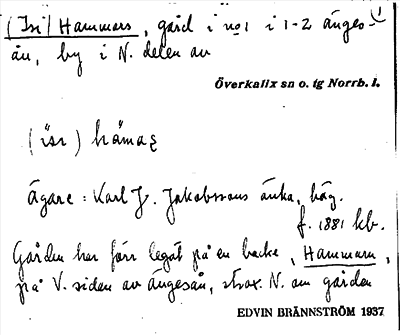 (Isi) Hammars, gård i no 1 i 1-2 änges-
ån, by i N. delen av
Överkalix sn o. tg Norrb. l.
(isi) hämaṣ
ägare: Karl J. Jakobssons änka, häg.
f. 1881 kb.
Gården har förr legat på en backe, Hammarn,
på V. sidan av ängesån, strax N. om gården
EDVIN BRÄNNSTRÖM 1937